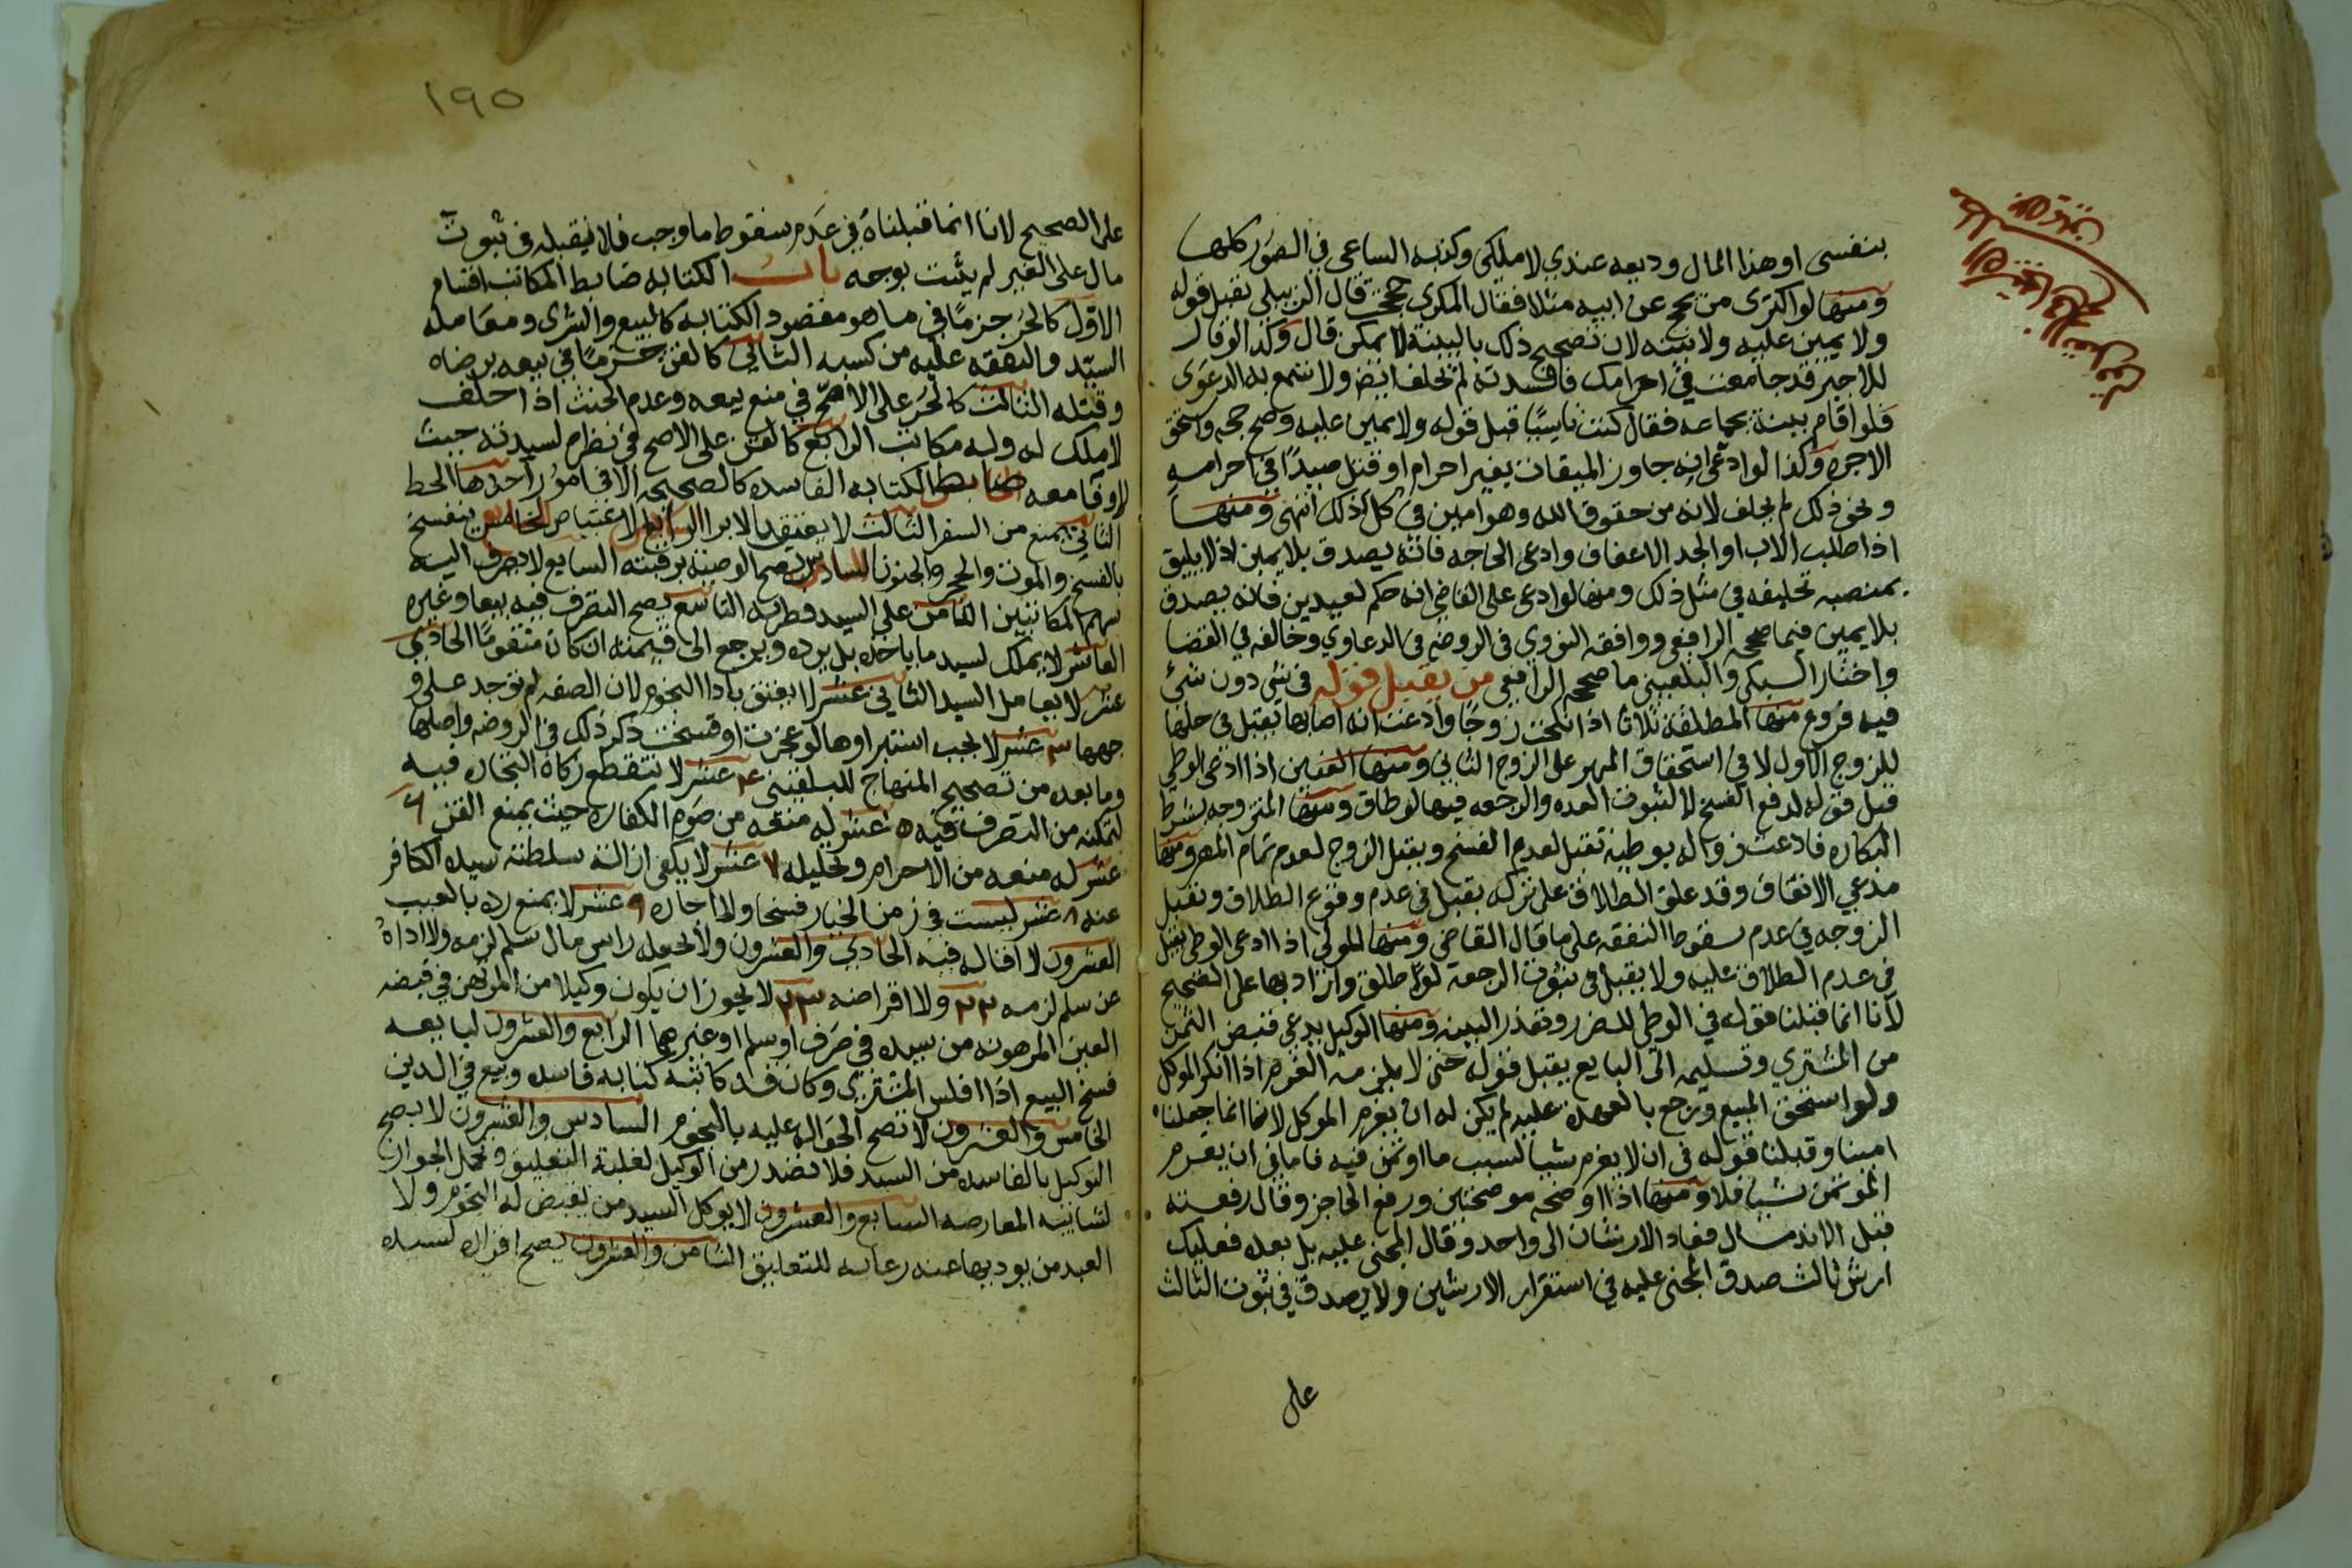 بنفسى او هذا المال وديعه عندي لا ملكى وكذبه الساعى فى الصور كلها
ومنها لو اكترى من يحج عن ابيه مثلا فقال المكرى حججت قال الزبيلي يقبل قوله
ولا يمين عليه ولا بينه لان تصحيح ذلك بالبينة لا يمكن قال وكذا لو قال
للاجير قد جامعت في احرامك فافسدته لم يحلف ايضا ولا تسمع به الدعوى
فلو اقام بينة بجماعه فقال كنت ناسيًا قبل قوله ولا يمين عليه وصح حجه واستحق
الاجره وكذا لو ادعى انه جاوز الميقات بغير احرام او قتل صيدًا في احرامه
ونحو ذلك لم يحلف لانه من حقوق الله وهو امين في كل ذلك انتهى ومنها
اذا طلب الاب او الجد الاعفاف وادعى الحاجه فانه يصدق بلا يمين اذ لا يليق
بمنصبه تحليفه في مثل ذلك ومنها لو ادعى على القاضى انه حكم بعبدين فانه يصدق
بلا يمين فيما صححه الرافعى ووافقه النووي فى الروضه فى الدعاوي وخالفه في القضا
واختار السبكى والبلقينى ما صححه الرافعى من يقبل قوله فى شى دون شئ
فيه فروع منها المطلقة ثلاثا اذا نكحت زوجًا وادعت انه اصابها يقبل فى حلها
للزوج الاول لا في استحقاق المهر على الزوج الثانى ومنها العنين اذا ادعى الوطى
قبل قوله لدفع الفسخ لا لثبوت العده والرجعه فيها لو طلق ومنها المتزوجه بشرط
البكاره فادعت زواله بوطيه تقبل لعدم الفسخ ويقبل الزوج لعدم تمام المهر ومنها
مدعي الانفاق وقد علق الطلاق على تركه يقبل فى عدم وقوع الطلاق وتقبل
الزوجه في عدم سقوط النفقه على ما قال القاضى ومنها المولى اذا ادعى الوطى يقبل
فى عدم الطلاق عليه ولا يقبل فى ثبوت الرجعة لو طلق وارادها على الصحيح
لانا انما قبلنا قوله في الوطى للضرر وتعذر البينه ومنها الوكيل يدعى قبض الثمن
من المشتري وتسليمه الى البايع يقبل قوله حتى لا يلزمه الغرم اذا انكر الموكل
ولو استحق المبيع ورجع بالعهدة عليه لم يكن له ان يغرم الموكل لانا انما جعلناه
امينا وقبلنا قوله فى ان لا يغرم شيا بسبب ما اوتمن فيه فاما فى ان يغرم
المؤتمن شيا فلا ومنها اذا اوضحه موضحتين ورفع الحاجز وقال رفعته
قبل الاندمال فعاد الارشان الى واحد وقال المجنى عليه بل بعده فعليك
ارش ثالث صدق المجنى عليه في استقرار الارشين ولا يصدق في ثبوت الثالث
على
١٩٥
على الصحيح لانا انما قبلناه في عدم سقوط ما وجب فلا نقبله فى ثبوت
مال على الغير لم يثبت بوجه باب الكتابه ضابط المكاتب اقسام
الاول كالحر جزمًا في ما هو مقصود الكتابه كالبيع والشرى ومعامله
السيد والنفقه عليه من كسبه الثانى كالقن جزمًا في بيعه برضاه
وقتله الثالث كالحر على الاصح في منع بيعه وعدم الحنث اذا حلف
لا ملك له وله مكاتب الرابع كالقن على الاصح في نظرم لسيدته حيث
لا وفا معه ضابط الكتابه الفاسده كالصحيحه الا فى امور احدها الحط
الثانى يمنع من السفر الثالث لا يعتق بالابرا الرابع الاعتياض الخامس ينفسخ
بالفسخ والموت والحجر والجنون السادس يصح الوصيه برقبته السابع لا يصرف اليه
سهم المكاتبين الثامن على السيد فطرته التاسع يصح التصرف فيه بيعا وغيره
العاشر لا يملك لسيد ما ياخذه بل يرده ويرجع الى قيمته ان كان متقومًا الحادى
عشر لا يعامل السيد الثانى عشر لا يعتق بادا النجوم لان الصفه لم توجد على و
جهها ٣ عشر لا يجب استبراوها لو عجزت او فسخت ذكر ذلك فى الروضه واصلها
وما بعده من تصحيح المنهاج للبلقينى ٤ عشر لا تنقطع زكاة التجاره فيه
لتمكنه من التصرف فيه ٥ عشر له منعه من صوم الكفاره حيث يمنع القن ٦
عشر له منعه من الاحرام وتحليله ٧ عشر لا يكفى ازالة سلطنة سيده الكافر
عنه ٨ عشر ليست فى زمن الخيار فسخا ولا اجازه ٩ عشر لا يمنع رده بالعيب
العشرون لا اقاله فيه الحادي والعشرون ولا لجعله راس مال سلم لزمه ولا اداؤه
عن سلم لزمه ٢٢ ولا اقراضه ٢٣ لا يجوز ان يكون وكيلا من المرتهن في قبضه
العين المرهونه من سيده في صرف او سلم او غيرهما الرابع والعشرون لبايعه
فسخ البيع اذا افلس المشتري وكان قد كاتبه كتابه فاسده وبيع في الدين
الخامس والعشرون لا تصح الحواله عليه بالنجوم السادس والعشرون لا يصح
التوكيل بالفاسده من السيد فلا تصدر من الوكيل لغلبة التعليق ويحمل الجواز
لشايبه المعاوضه السابع والعشرون لا يوكل السيد من يقبض له النجوم ولا
العبد من يوديها عنه رعايه للتعليق الثامن والعشرون يصح اقراره لسيده